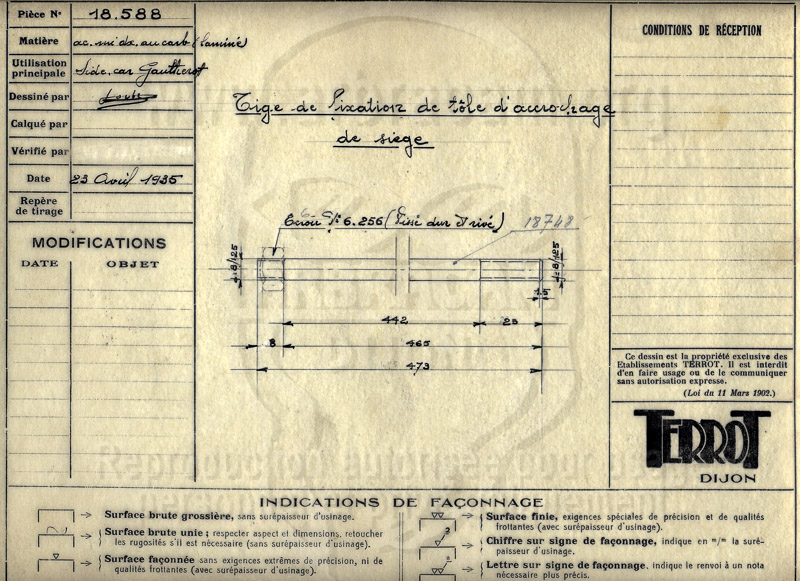 Pièce N° 18.588
Matière ac. mi dx. au carb laminé
Utilisation principale Side.car
Dessiné par
Calqué par
Vérifié par
Date 23 Avril 1935
Repère de tirage
MODIFICATIONS
DATE OBJET
Tige de fixation de tôle d'accrochage
de siège
Ecrou N° 6.256 (Vissé dur et rivé) 18748
8/125
8/125
1.5
442 23
8 465
473
CONDITIONS DE RÉCEPTION
Ce dessin est la propriété exclusive des
Etablissements TERROT. Il est interdit
d'en faire usage ou de le communiquer
sans autorisation expresse.
(Loi du 11 Mars 1902.)
TERROT
DIJON
INDICATIONS DE FAÇONNAGE
Surface brute grossière, sans surépaisseur d'usinage.
Surface brute unie ; respecter aspect et dimensions, retoucher
les rugosités s'il est nécessaire (sans surépaisseur d'usinage).
Surface façonnée sans exigences extrêmes de précision, ni de
qualités frottantes (avec surépaisseur d'usinage).
Surface finie, exigences spéciales de précision et de qualités
frottantes (avec surépaisseur d'usinage).
Chiffre sur signe de façonnage, indique en m/m la surépaisseur
d'usinage.
Lettre sur signe de façonnage, indique le renvoi à un nota
nécessaire plus précis.